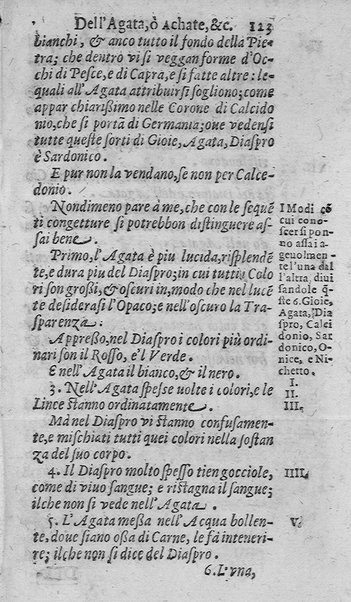 Dell'Agata, ò Achate, &c. 123
bianchi, & anco tutto il fondo della Pie-
tra; che dentro vi si veggan forme d'Oc-
chi di Pesce, e di Capra, e si fatte altre: le-
quali all'Agata attribuir si sogliono; come
appar chiarißimo nelle Corone di Calcido
nio, che si portã di Germania; oue vedensi
tutte queste sorti di Gioie, Agata, Diaspro
è Sardonico.
E pur non la vendano, se non per Calce-
donio.
Nondimeno pare à me, che con le seguẽ
ti congetture si potrebbon distinguere as-
sai bene.
Primo, l'Agata è piu lucida, risplendẽ
te, e dura piu del Diaspro; in cui tutti i Colo
ri son großi, & oscuri, in modo che nel lucẽ
te desiderasi l'Opaco; e nell'oscuro la Tra-
sparenza.
Appreßo, nel Diaspro i colori più ordi-
nari son il Rosso, e'l Verde.
E nell'Agata il bianco, & il nero.
3. Nell'Agata speße uolte i colori, e le
Linee stanno ordinatamente.
Mà nel Diaspro vi stanno confusamen-
te, e mischiati tutti quei colori nella sostan
za del suo corpo.
4. Il Diaspro molto speßo tien gocciole,
come di viuo sangue; e ristagna il sangue;
ilche non si vede nell'Agata.
5. L'Agata meßa nell'Acqua bollen-
te, doue siano oßa di Carne, le fà intene-
rire; ilche non si dice del Diaspro.
6. L'vna,
I Modi cõ
cui cono-
scer si pon
no assai a
geuolmen-
te l'una dal
l'altra, diui
sandole q̃-
ste s. Gioie,
Agata, Dia
spro, Calci
donio, Sar
donico, O-
nice, e Ni-
chetto.
I.
II.
III.
IIII.
V.